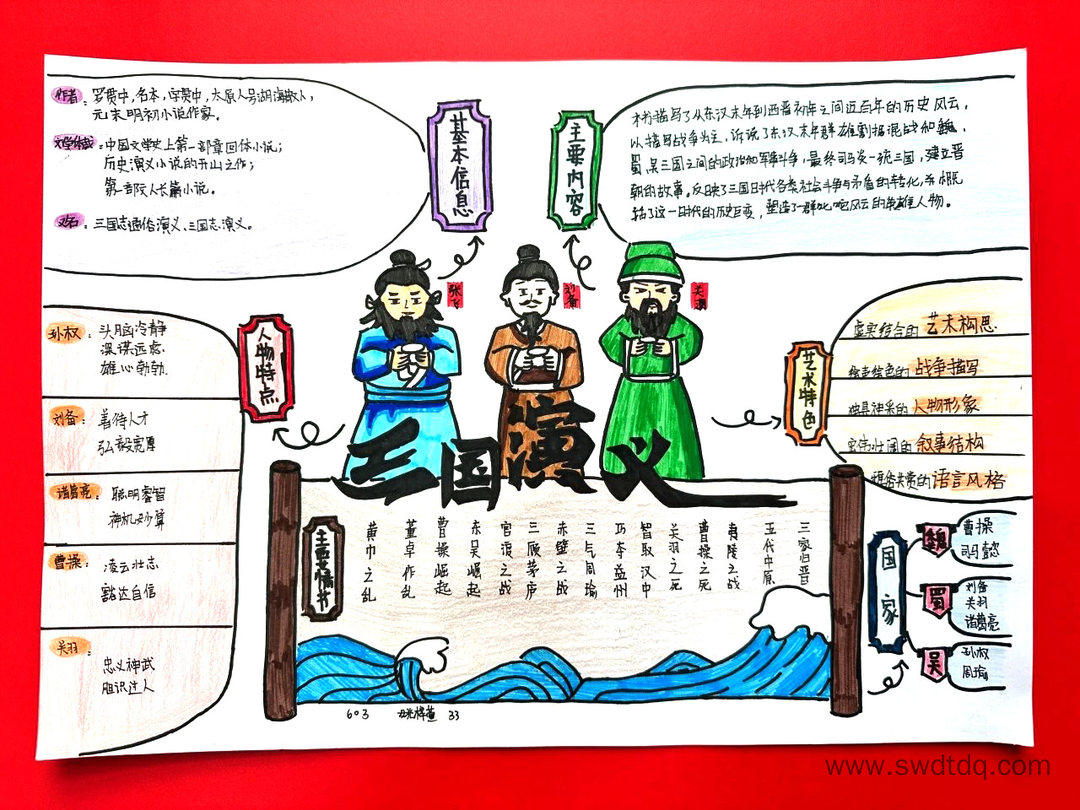 基本信息
作者：罗贯中，名本，字贯中，太原人号湖海散人，
元末明初小说作家。
文学体裁：中国文学史上第一部章回体小说；
历史演义小说的开山之作；
第一部文人长篇小说。
又名：三国志通俗演义、三国志演义。
主要内容
本书描写了从东汉末年到西晋初年之间近百年的历史风云，
以描写战争为主，诉说了东汉末年群雄割据混战和魏、
蜀、吴三国之间的政治和军事斗争，最终司马炎一统三国，建立晋
朝的故事。反映了三国时代各类社会斗争与矛盾的转化，并概
括了这一时代的历史巨变，塑造了一群叱咤风云的英雄人物。
张飞
刘备
关羽
人物特点
孙权：头脑冷静
深谋远虑
雄心勃勃
刘备：善待人才
弘毅宽厚
诸葛亮：聪明睿智
神机妙算
曹操：凌云壮志
豁达自信
关羽：忠义神武
胆识过人
艺术特色
虚实结合的 艺术构思
的 战争描写
独具神采的 人物形象
宏伟壮阔的 叙事结构
的 语言风格
三国演义
主要情节
黄巾之乱
董卓作乱
曹操崛起
东吴崛起
官渡之战
三顾茅庐
赤壁之战
三气周瑜
巧夺益州
智取汉中
关羽之死
曹操之死
夷陵之战
五伐中原
三家归晋
国家
魏
曹操
司马懿
蜀
刘备
关羽
诸葛亮
吴
孙权
周瑜
603 33
www.swdtdq.com